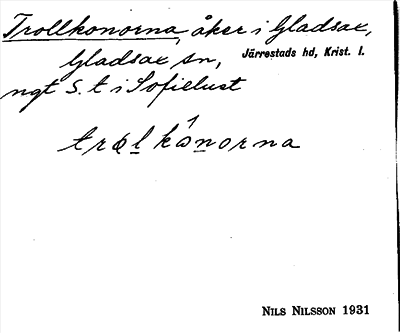 Trollkonorna, åker i Gladsax,
Gladsax sn, Järrestads hd, Krist. l.
ngt S. t i Sofielust
trølkǫnorna
NILS NILSSON 1931